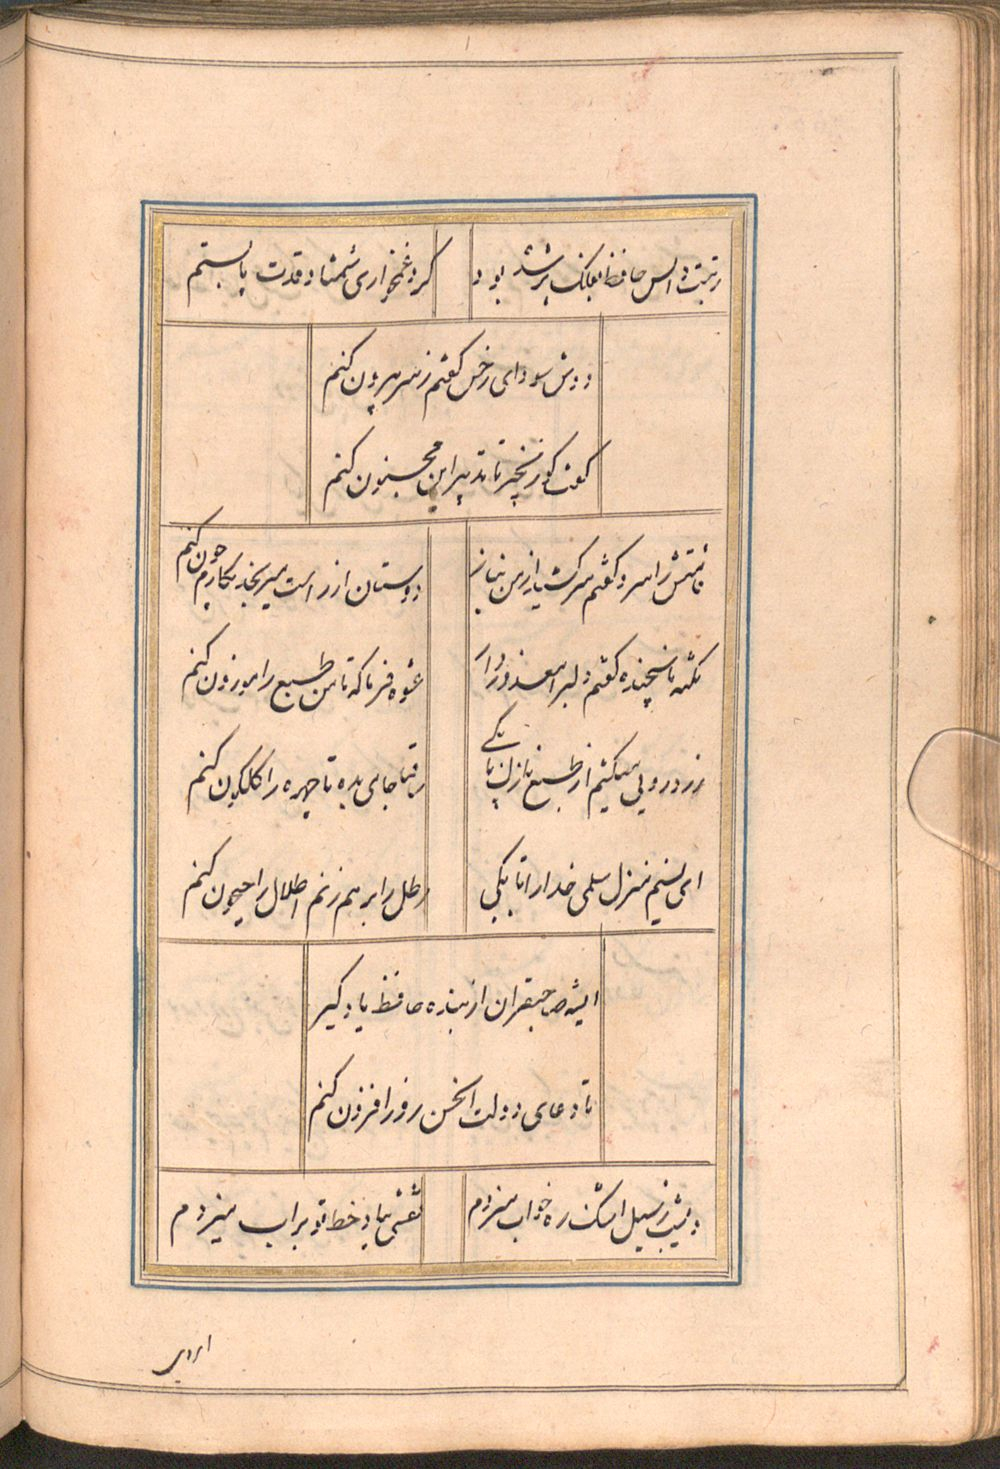 رتبت دانش حافظ بفلک بر شده بود
کرد غمخواری شمشاد قدت پا بستم
دوش سودای رخش گفتم ز سر بیرون کنم
گفت کو زنجیر تا تدبیر این مجنون کنم
قامتش را سرو گفتم سرکشید از من بناز
دوستان از راست میرنجد نگارم چون کنم
نکته ناسنجیده گفتم دلبرا معذور دار
عشوه فرما که تا من طبع را موزون کنم
زرد رویی میکشم از طبع نازک پاکی
ساقیا جامی بده تا چهره را گلگون کنم
ای نسیم منزل سلمی خدا را تا بکی
ربع را برهم زنم اطلال را جیحون کنم
ای شه صاحبقران از بنده حافظ یاد گیر
تا دعای دولت آن حسن روز افزون کنم
دیشب ز سیل اشک ره خواب میزدم
نقشی بیاد خط تو بر آب میزدم
ابروی